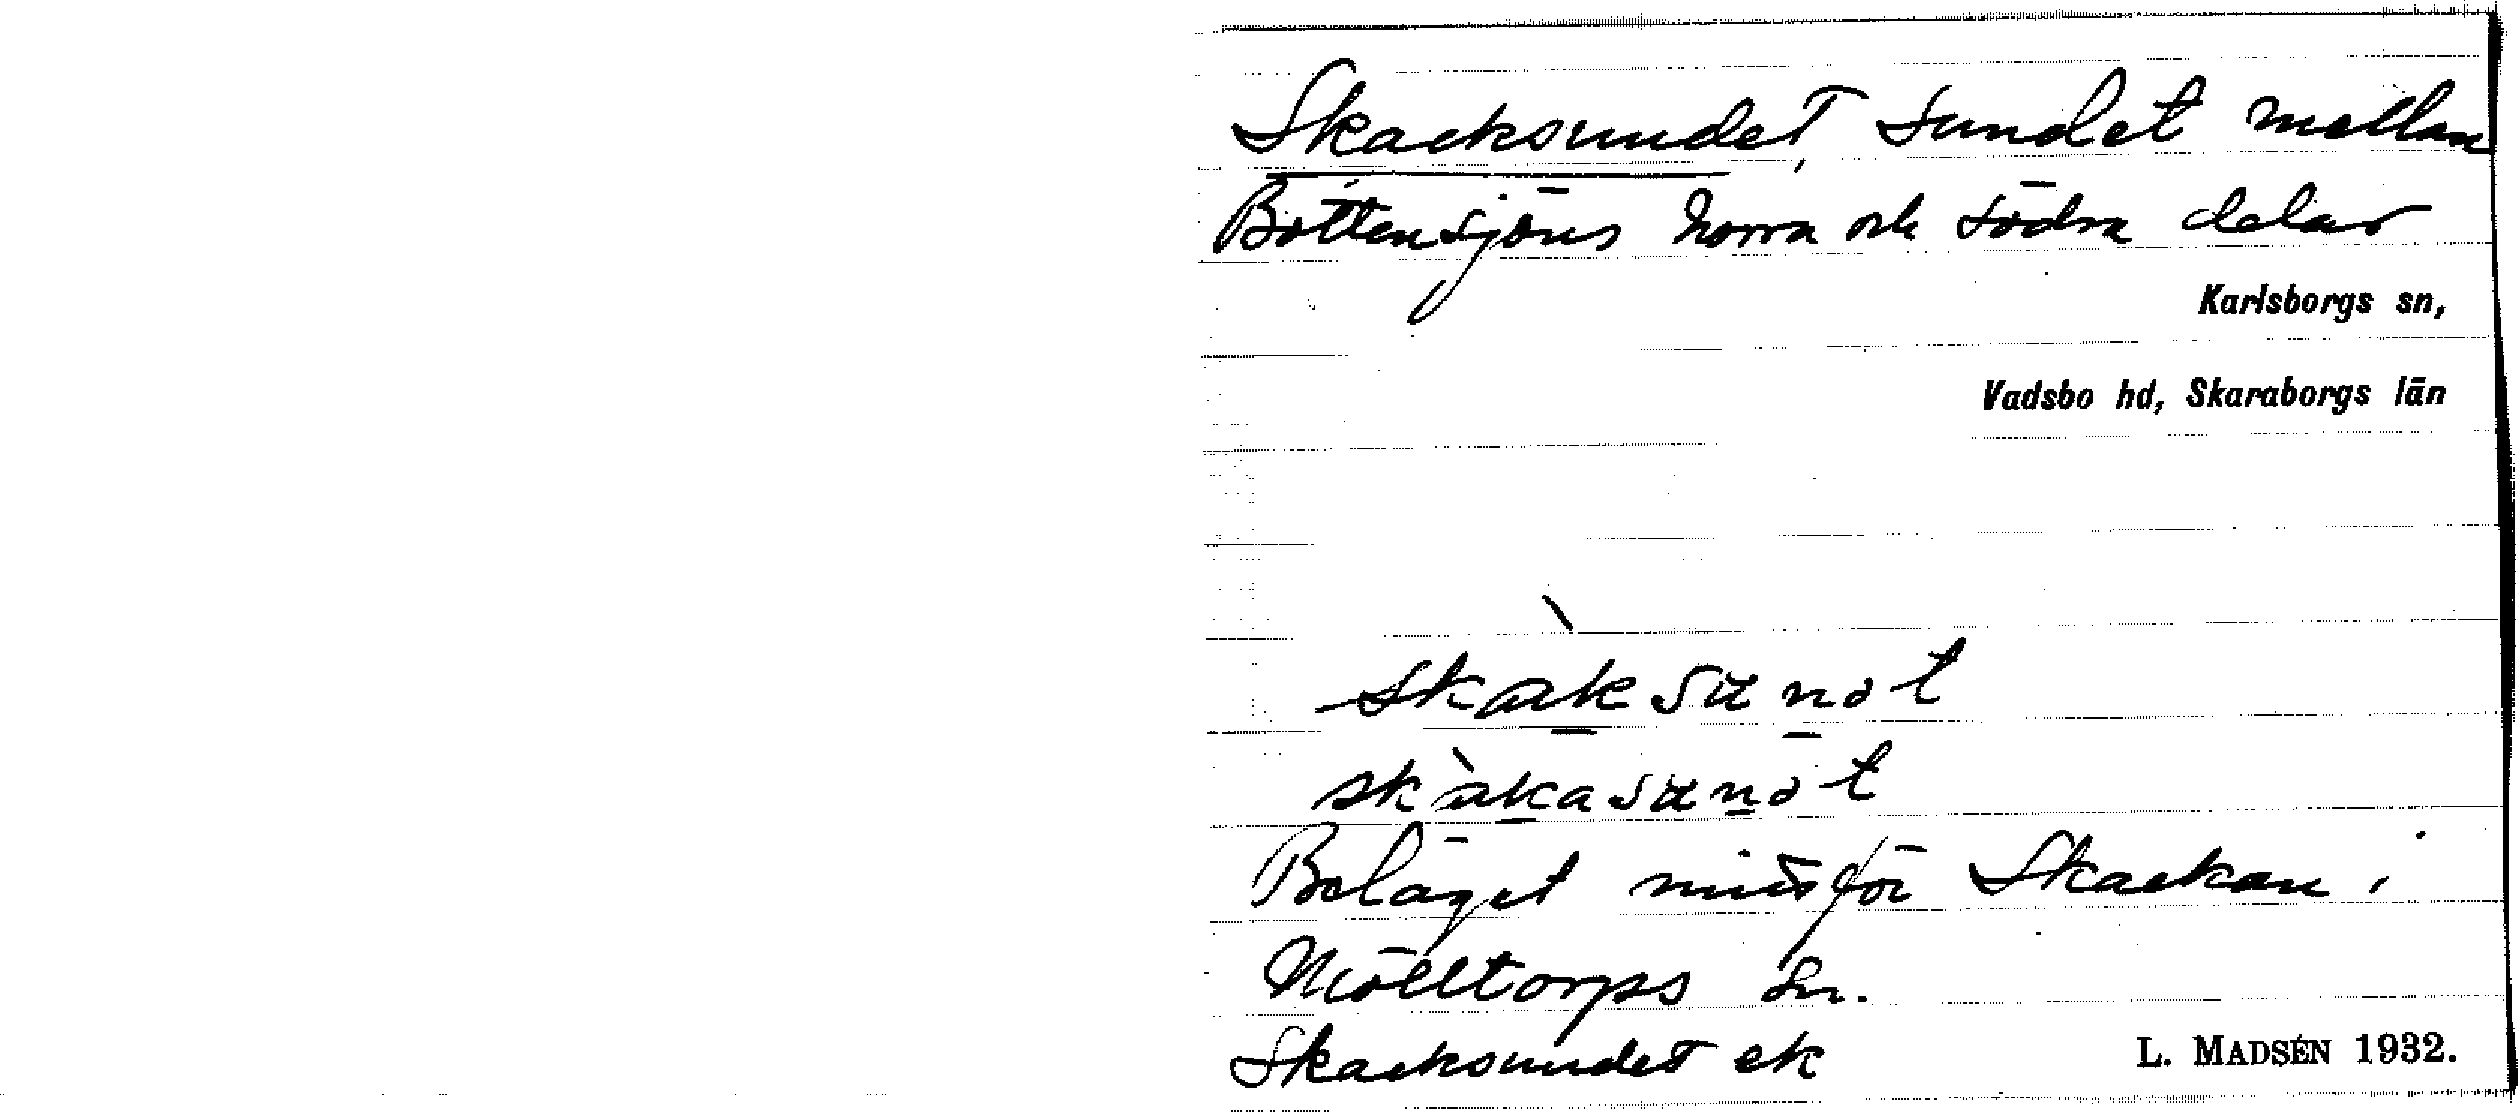 Skacksundet, Sundet mellan
Bottensjöns norra och södra delar
Karlsborgs sn,
Vadsbo hd, Skaraborgs län
skaksunət
skàkasunət
Beläget mitt för Skackan i
Mölltorps sn.
Skacksundet ek
L. MADSÉN 1932.